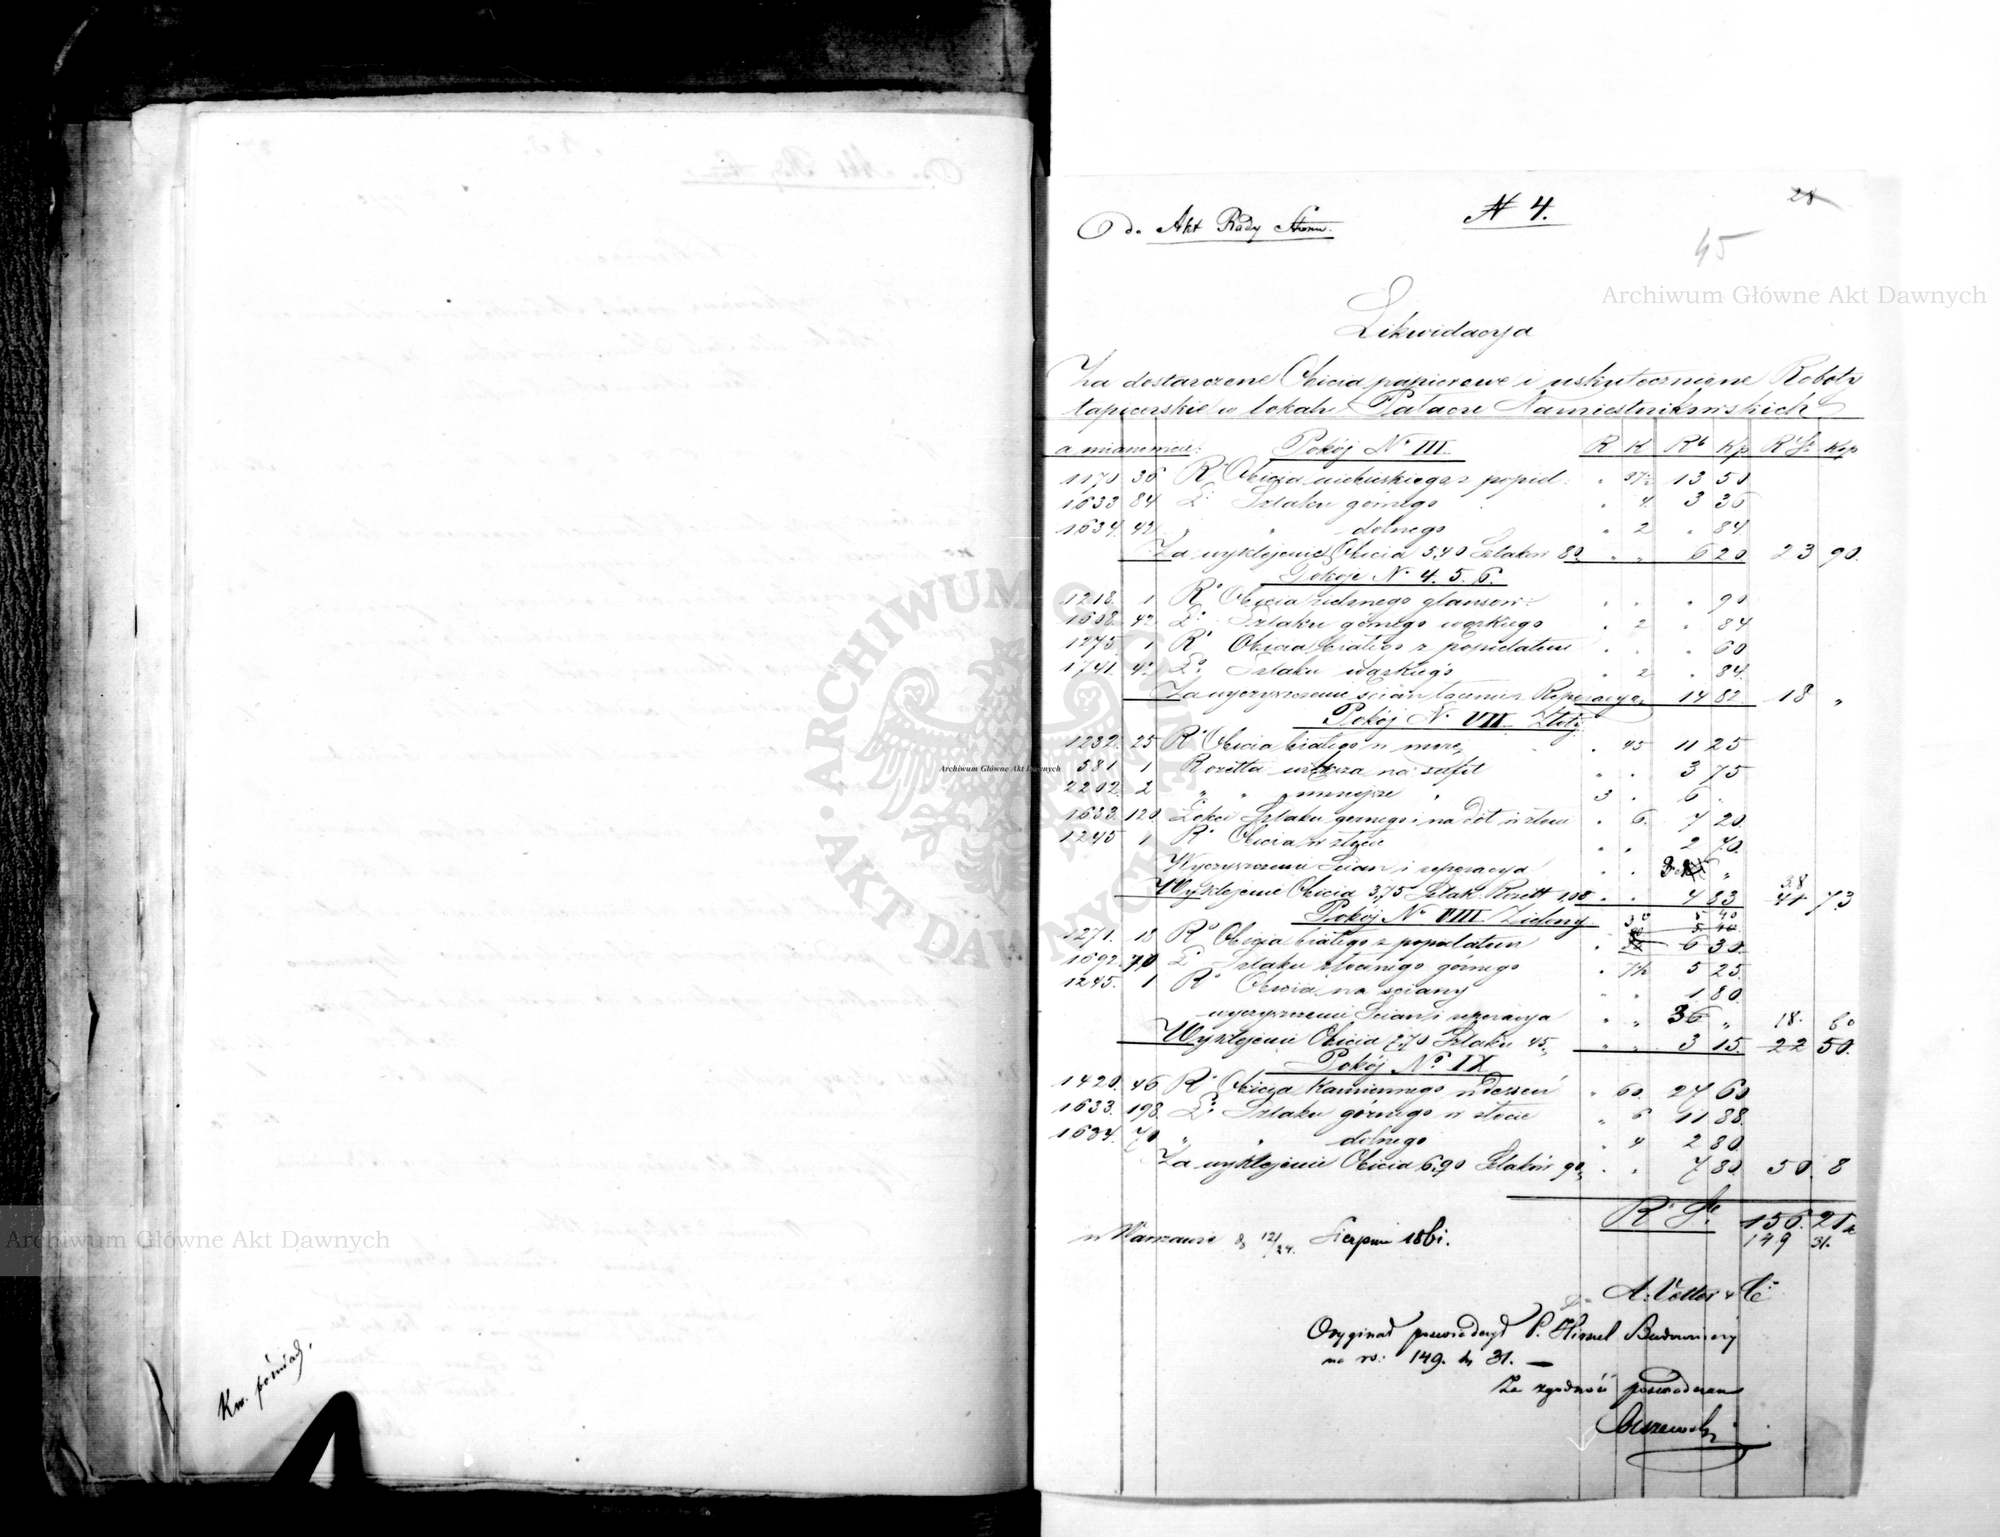 Km. późniad,
Do Akt Rady Stanu.
N 4.
28
45
Likwidacya
Za dostarczone Obicia papierowe i uskutecznione Roboty
tapicerskie w lokalu Pałacu Namiestnikowskich
a mianowicie: Pokój No III. R K Rb Kp Rs Kop
1170 36 R. Obicia niebieskiego z popiel. " 37½ 13 50
1633 84 Ł. Szlaku górnego " 4 3 36
1634. 42 " " dolnego " 2 " 84
Za wyklejenie Obicia 5,40 Szlaków 80. " " 6 20 23 90.
Pokoje No 4. 5. 6.
1218. 1 R. Obicia zielonego glansow: " " " 90
1638. 42 Ł. Szlaku górnego wązkiego " 2 " 84
1275. 1 R. Obicia białego z popielatem " " " 60
1741. 42 Ł. Szlaku wązkiego " 2 " 84.
Za wyczyszczenie ścian łącznie z Reperacyą 14 82. 18 "
Pokój No VII. Złoty
1232. 25 R. Obicia białego w morę " 45 11 25
581 1 Rozetta większa na sufit " " 3 75
2202. 2 " " mniejsze " 3 " 6 "
1633. 120. Łokci Szlaku gornego i na dół w złocie " 6. 7 20
1245 1 R. Obicia w złocie " " 2 70.
Wyczyszczenie Ścian i reperacya " "
Wyklejenie Obicia 3,75 Szlak. Rozett 1,08 " " 4 83 38 41 73
Pokój No VIII. Zielony
30 5 40
1271. 18 R. Obicia białego z popielatem " 6 30.
1692. 70 Ł. Szlaku złoconego górnego " 7½ 5 25.
1245. 1 R. Obicia na ściany " " 1 80.
wyczyszczenie Ścian i reperacya " " 36 " 18. 60
Wyklejenie Obicia 2,70 Szlaku 45 " " " 3 15. 22 50.
Pokój No IX
1420. 46 R. Obicia Kamiennego w deseń " 60. 27 60
1633. 198. Ł. Szlaku górnego w złocie " 6 11 88.
1634. 70 " " dolnego " 4 2 80
Za wyklejenie Obicia 6,90 Szlaków 90 " " " 7 80 50. 8
Rs 156. 21½
149 31.
w Warszawie d. 12/24. Sierpnia 1861.
A. Vetter & Co
Oryginał poswiadczył P. Hirszel Budowniczy
na rs: 149. k. 31. —
Za zgodność poswiadczam
Archiwum Główne Akt Dawnych
Archiwum Główne Akt Dawnych
Archiwum Główne Akt Dawnych
ARCHIWUM GŁÓWNE AKT DAWNYCH